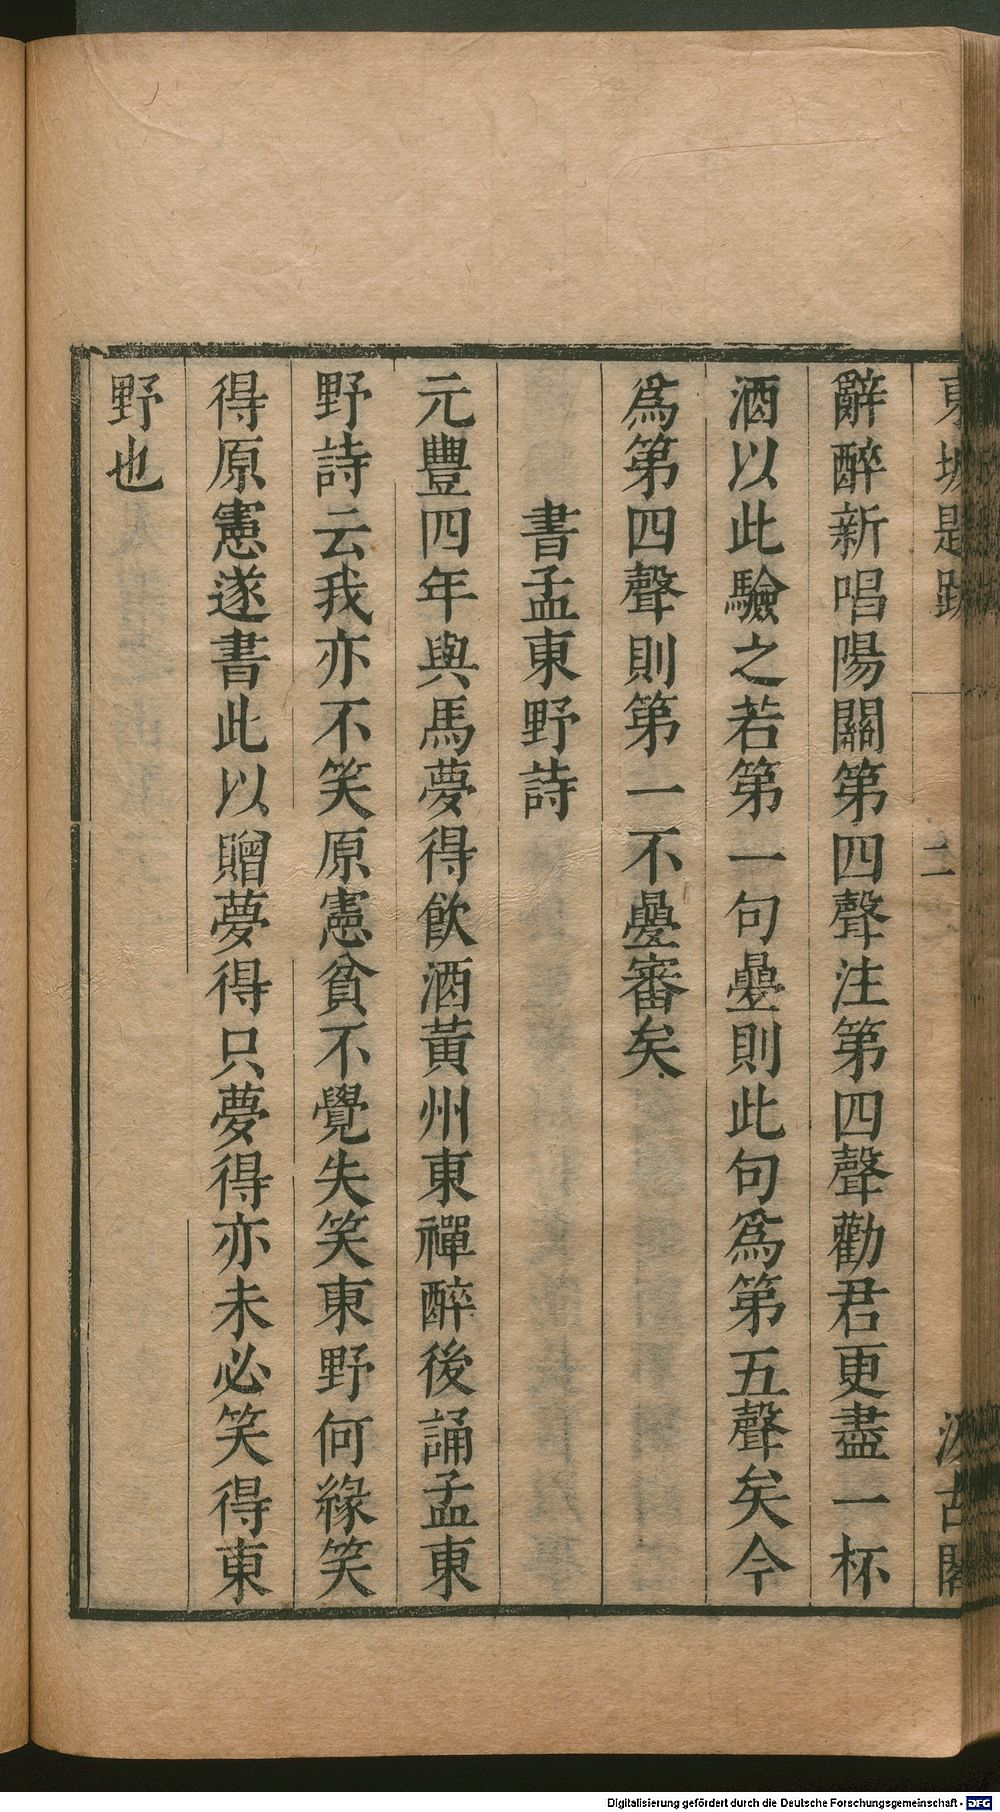 東坡題跋 二 汲古閣
辭醉新唱陽關第四聲注第四聲勸君更盡一杯
酒以此驗之若第一句疊則此句爲第五聲矣今
爲第四聲則第一不疊審矣
書孟東野詩
元豐四年與馬夢得飲酒黃州東禪醉後誦孟東
野詩云我亦不笑原憲貧不覺失笑東野何緣笑
得原憲遂書此以贈夢得只夢得亦未必笑得東
野也
Digitalisierung gefördert durch die Deutsche Forschungsgemeinschaft - DFG